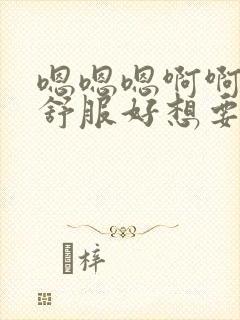 嗯嗯嗯啊啊
舒服好想要
梓